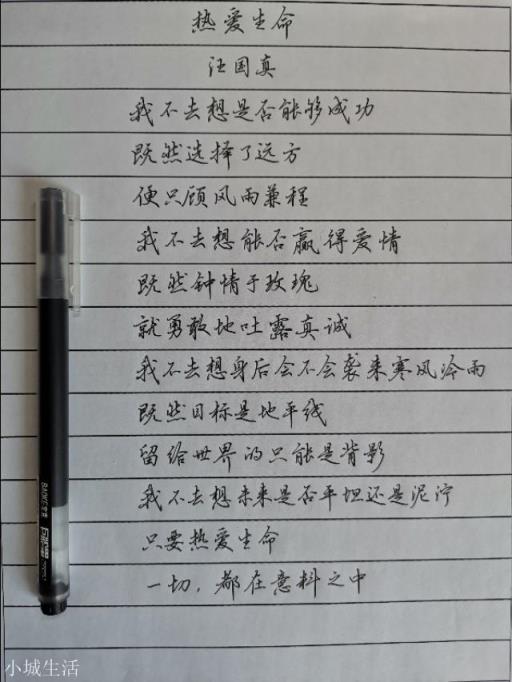 热爱生命
汪国真
我不去想是否能够成功
既然选择了远方
便只顾风雨兼程
我不去想能否赢得爱情
既然钟情于玫瑰
就勇敢地吐露真诚
我不去想身后会不会袭来寒风冷雨
既然目标是地平线
留给世界的只能是背影
我不去想未来是否平坦还是泥泞
只要热爱生命
一切，都在意料之中
BAOKE 宝克
小城生活